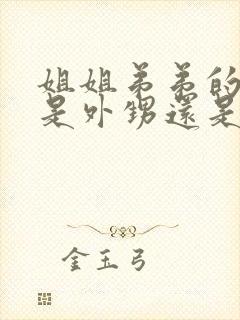 姐姐弟弟的
是外甥還是
金玉弓